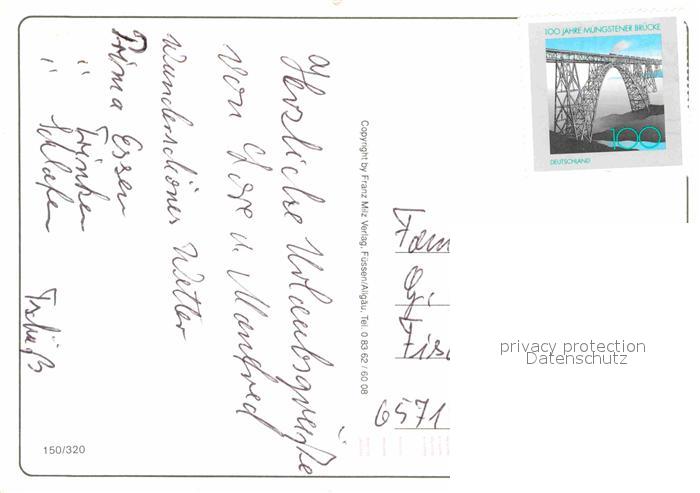 Herzliche Urlaubsgrüße
von Lore u. Manfred
Wunderschönes Wetter
Prima Essen
" Trinken
" Schlafen
Tschüß
Copyright by Franz Milz Verlag, Füssen/Allgäu, Tel. 0 83 62 / 60 08
150/320
100 JAHRE MUNGSTENER BRÜCKE
100
DEUTSCHLAND
Fam
Fis
6571
privacy protection
Datenschutz